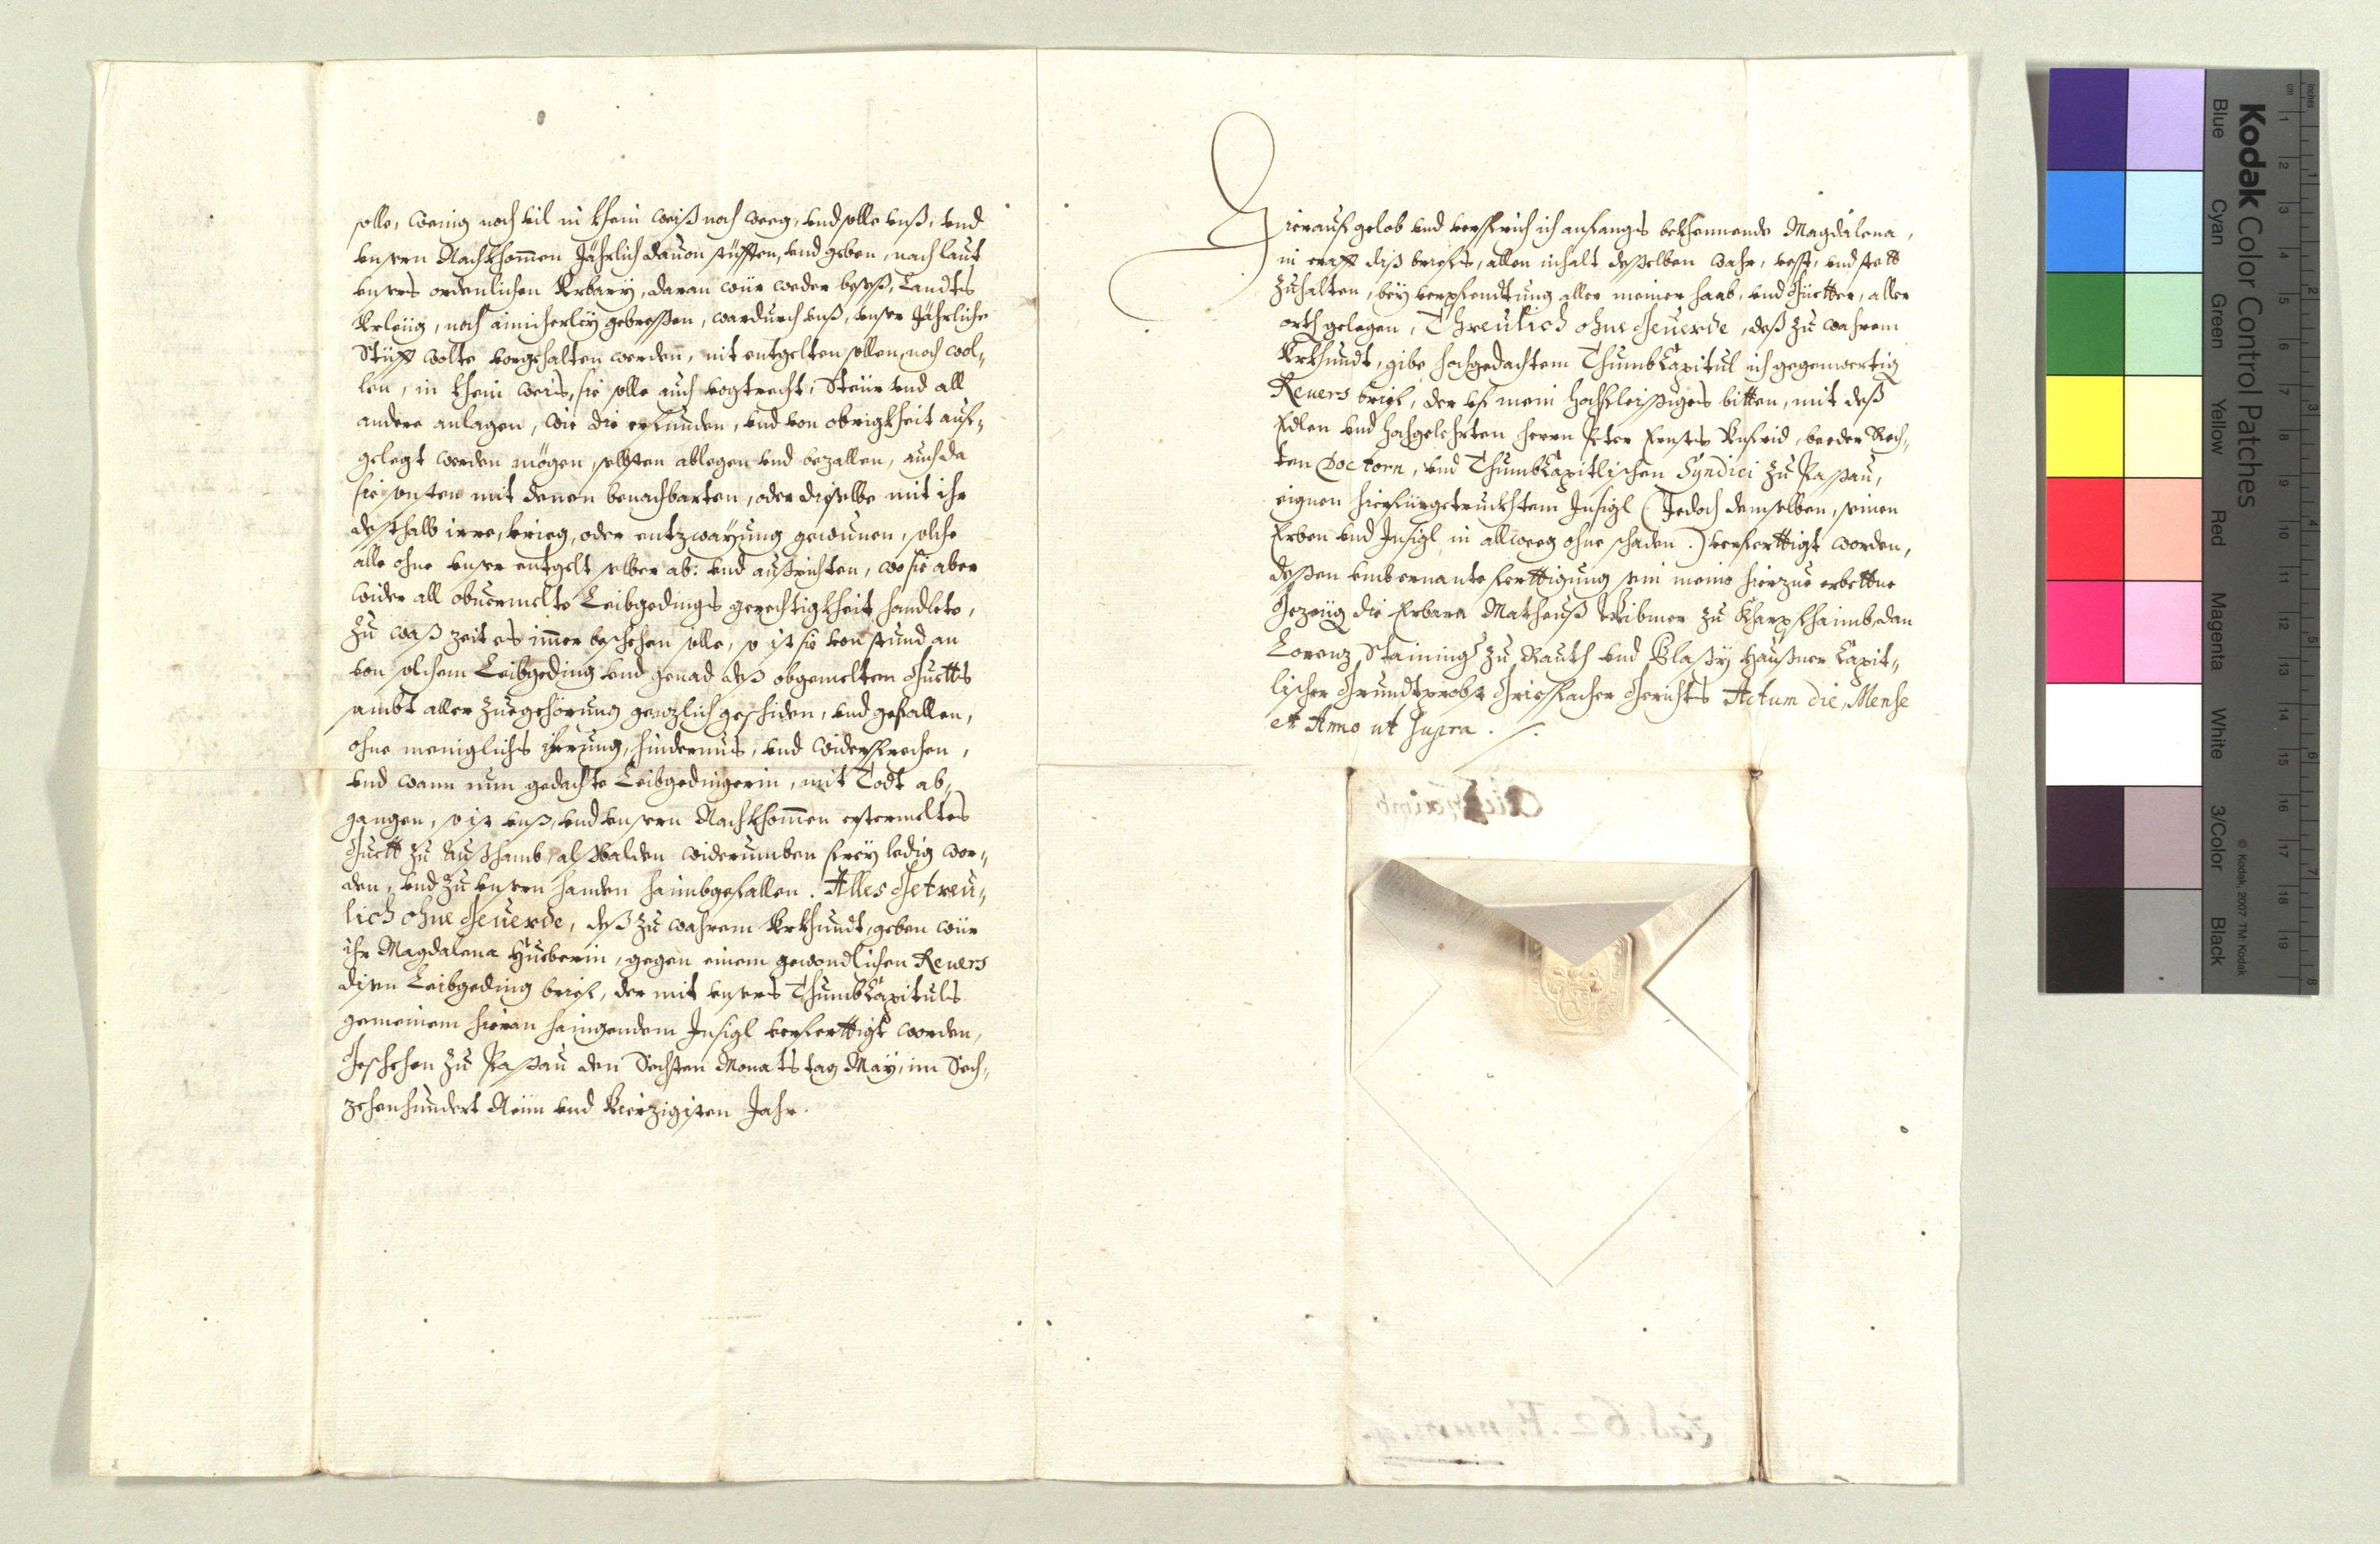 solle, wenig noch vil in khein weiß noch weeg, vnd solle vnß, vnd
vnsern Nachkhom̄en Jährlich dauon stüfften, vnd geben, nach laut
vnsers ordenlichen Vrbary, daran wür weder beseß, Landts
Vrleüg, noch ainicherleÿ gebressten, wardurch vnß, vnser Jährliche
Stüfft wolte vorgehalten werden, nit entgelten sollen, noch wol,,
len, in khein weis, sie solle auch vogtrecht, Steür vnd all
andere anlagen, wie die erfunden, vnd von obrigkheit auf,,
gelegt werden mögen, selbsten ablegen vnd bezallen, auch da
sie sonsten mit denen benachbarten, oder dieselbe mit ihr
desthalb irre, krieg, oder entzwaÿung gewunen, solche
alle ohne vnser entgelt selber ab: vnd außrichten, wo sie aber
wider all obuermelte Leibgedings gerechtigkheit handlete,
zu waß zeit es im̄er beschehen solle, so ist sie von stund an
von solchem Leibgeding vnd genad deß obgemelten Guetts
sambt aller zuegehörung genzlich geschiden, vnd gefallen,
ohne meniglichs ihrung, hindernus, vnd widersprechen,
vnd wann nun gedachte Leibgedingerin, mit Todt ab,,
gangen, so ist vnß, vnd vnsern Nachkhom̄en erstermeltes
Guett zu Außhamb, alßbalden widerumben freÿ ledig wor,,
den, vnd zu vnsern handen haimbgefallen. Alles Getreu,,
lich ohne Geuerde, deß zu wahrem Vrkhundt, geben wür
ihr Magdalena Hueberin, gegen einem gewondlichen Reuers
disen Leibgeding brief, der mit vnsers ThumbCapituls
gemeinem hieran hangendem Insigl verferttigt worden,
Geschehen zu Passau den Sechsten Monats tag May, im Sech,,
zehenhundert Neün vnd Vierzigisten Jahr.
Hierauf gelob vnd versprich ich anfangs bekhennende Magdalena,
in crafft diß briefs, allen inhalt desselben wahr, vesst, vnd stett
zuhalten, beÿ verpfendtung aller meiner haab, vnd Güetter, aller
orth gelegen, Threulich ohne Geuerde, deß zu wahrem
Vrkhundt, gibe hochgedachtem ThumbCapitul ich gegenwertig
Reuers brief, der vf mein hochfleissiges bitten, mit deß
Edlen vnd hochgelehrten herrn Peter Ernsts Vnfrid, beeder Rech,,
ten Doctorn, vnd ThumbCapitlischen Syndici zu Passau,
eignen hierfürgetrucktem Insigl (Jedoch demselben, seinen
Erben vnd Insigl, in allweeg ohne schaden.) verferttigt worden,
dessen vmb ernante ferttigung sein meine hierzue erbettne
Gezeüg die Erbarn Matheuß Widmer zu Kharpfhaimb, dan
Lorenz Staininger zu Rauth vnd Blasÿ Haußner Capit,,
lischer Grundtprobst Griesbacher Gerichts Actum die, Mense
et Anno ut Supra.